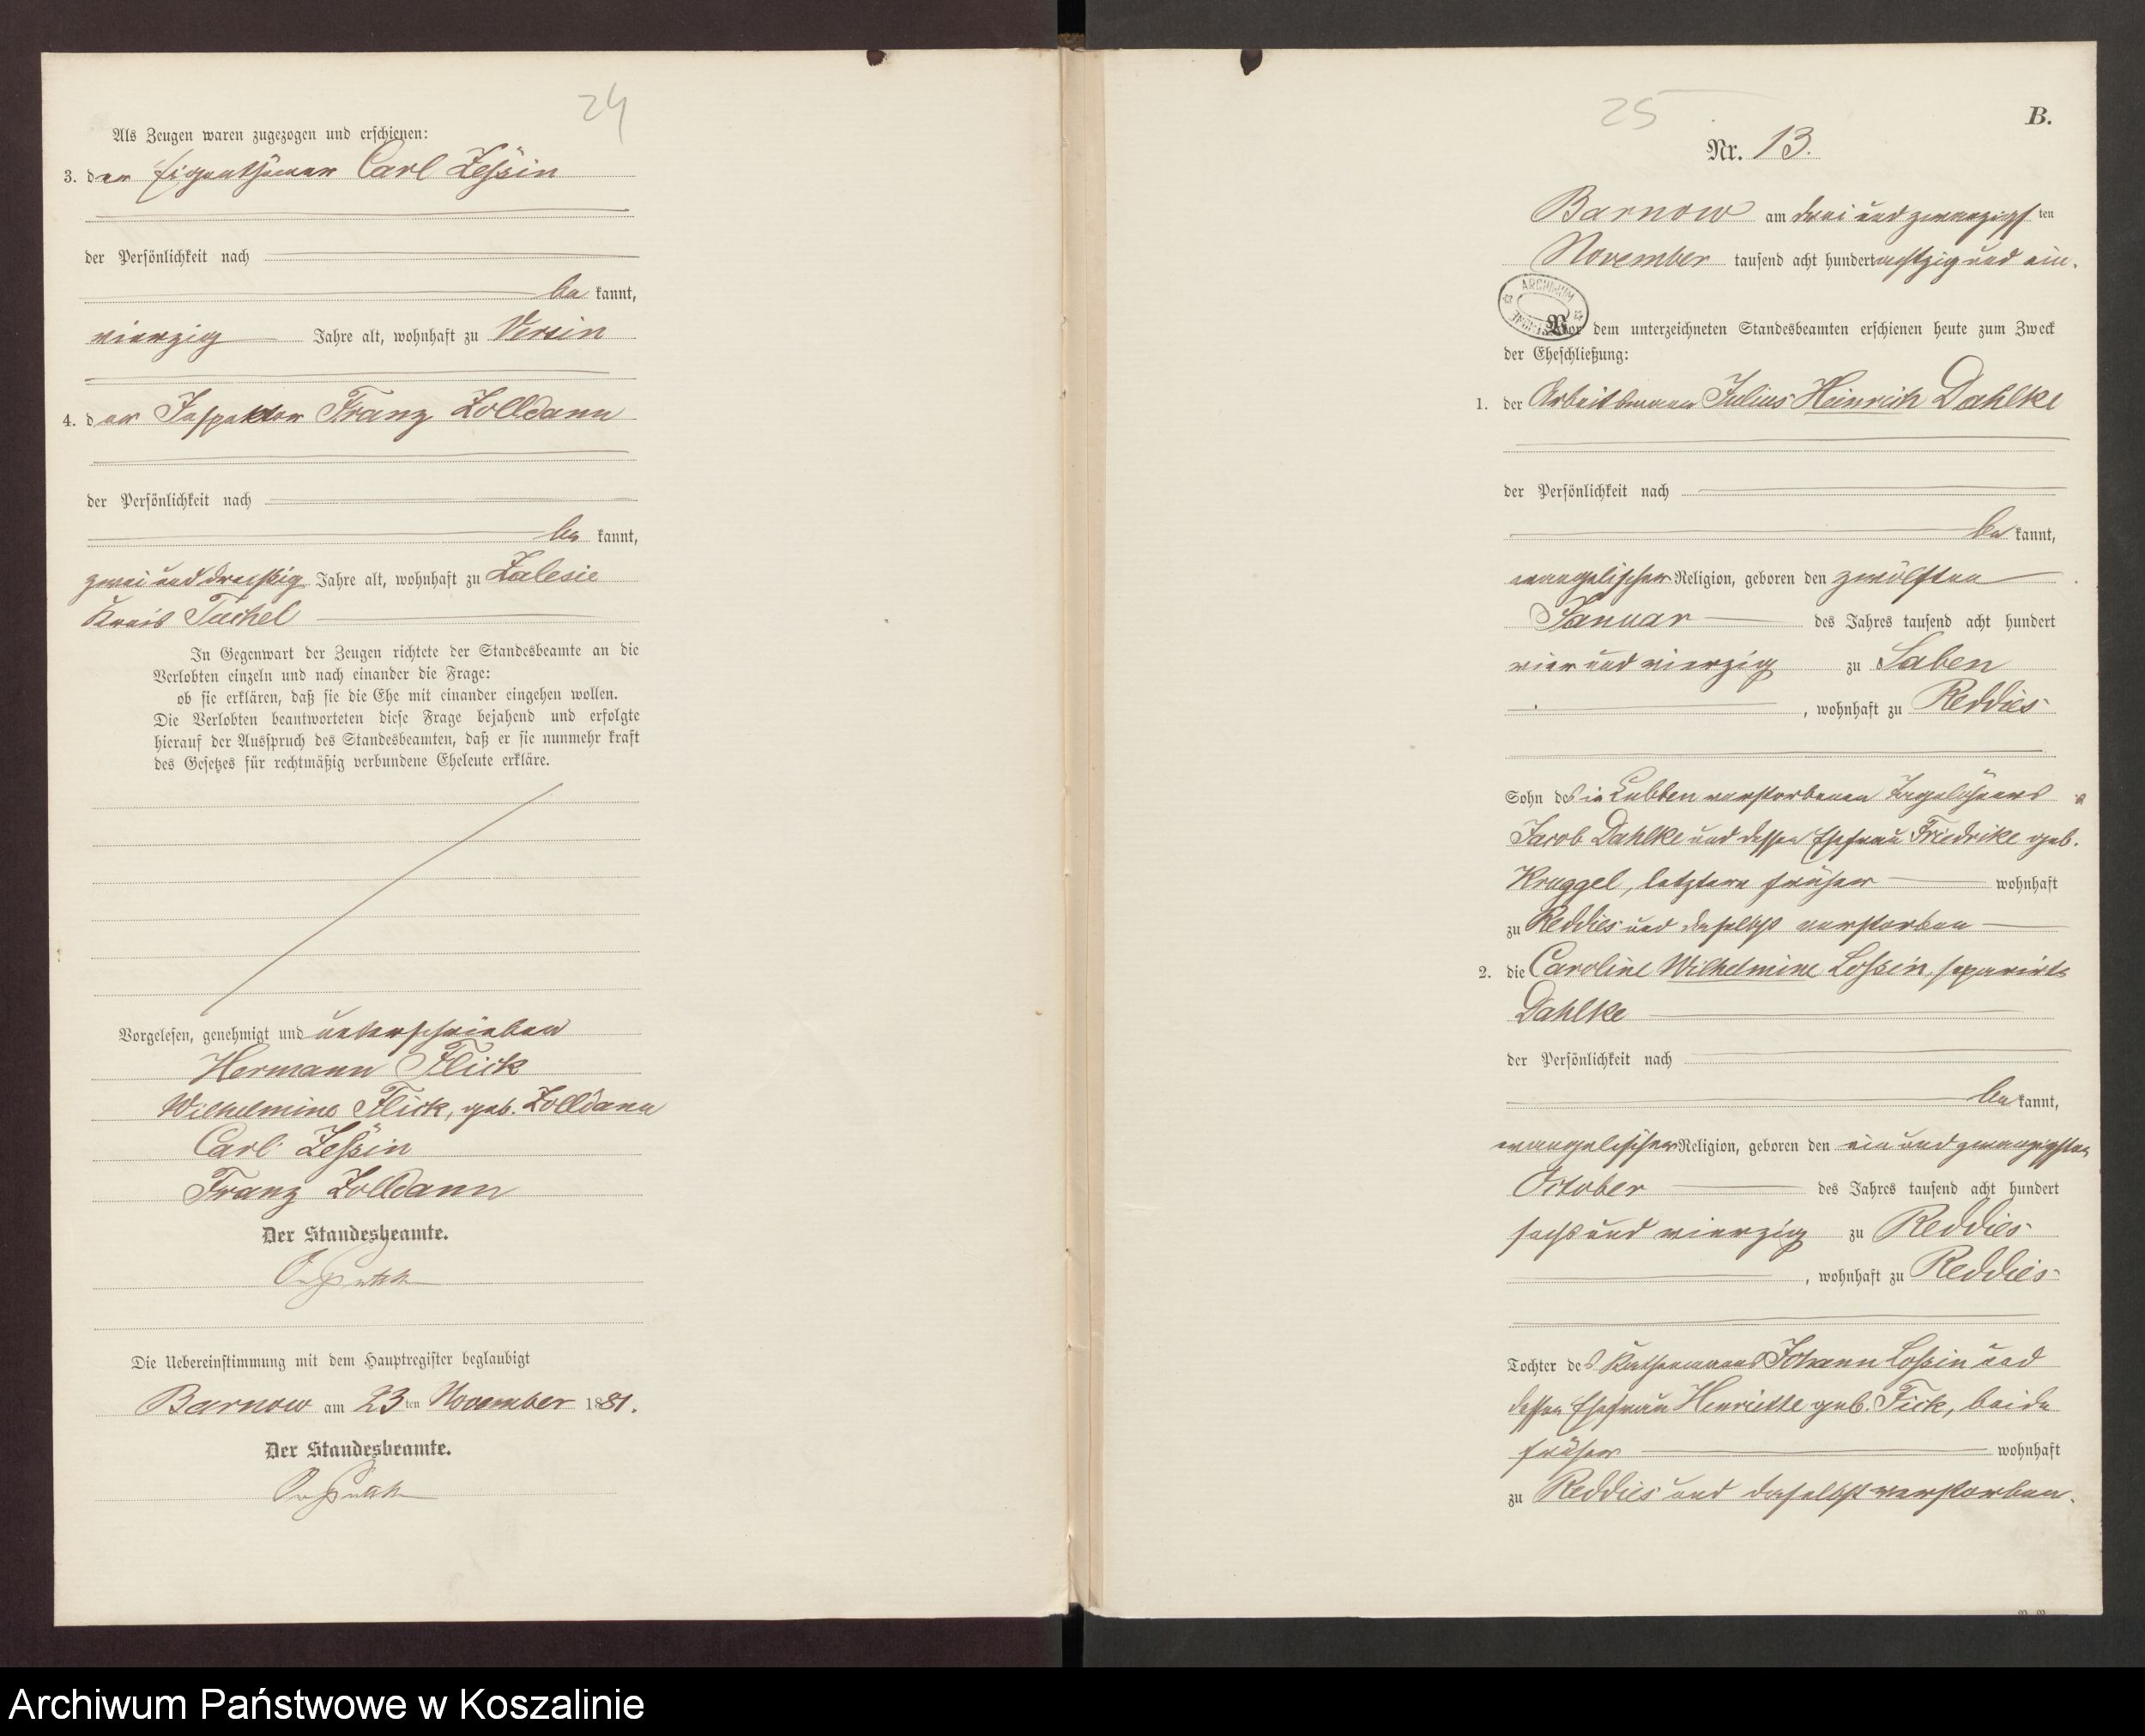 24
Als Zeugen waren zugezogen und erschienen:
3. der Eigenthümer Carl Zessin
der Persönlichkeit nach
be kannt,
vierzig Jahre alt, wohnhaft zu Versin
4. der Inspektor Franz Zolldann
der Persönlichkeit nach
be kannt,
zwei und dreißig Jahre alt, wohnhaft zu Zalesie
Kreis Tuchel
In Gegenwart der Zeugen richtete der Standesbeamte an die
Verlobten einzeln und nach einander die Frage:
ob sie erklären, daß sie die Ehe mit einander eingehen wollen.
Die Verlobten beantworteten diese Frage bejahend und erfolgte
hierauf der Ausspruch des Standesbeamten, daß er sie nunmehr kraft
des Gesetzes für rechtmäßig verbundene Eheleute erkläre.
Vorgelesen, genehmigt und unterschrieben
Hermann Flick
Wilhelmine Flick, geb. Zolldann
Carl Zessin
Franz Zolldann
Der Standesbeamte.
Die Uebereinstimmung mit dem Hauptregister beglaubigt
Barnow am 23 ten November 1881.
Der Standesbeamte.
25
B.
Nr. 13.
Barnow am drei und zwanzigs ten
November tausend acht hundert achtzig und ein.
Vor dem unterzeichneten Standesbeamten erschienen heute zum Zweck
der Eheschließung:
1. der Arbeitsmann Julius Heinrich Dahlke
der Persönlichkeit nach
be kannt,
evangelischer Religion, geboren den zwölften
Januar des Jahres tausend acht hundert
vier und vierzig zu Saben
, wohnhaft zu Reddies
Sohn des in Lubben verstorbenen Tagelöhners
Jacob Dahlke und dessen Ehefrau Friedrike geb.
Kruggel, letztere früher wohnhaft
zu Reddies und daselbst verstorben
2. die Caroline Wilhelmine Lossin, separirte
Dahlke
der Persönlichkeit nach
be kannt,
evangelischer Religion, geboren den ein und zwanzigsten
October des Jahres tausend acht hundert
sechs und vierzig zu Reddies
, wohnhaft zu Reddies
Tochter des Kathenmanns Johann Lossin und
dessen Ehefrau Henriette geb. Fick, beide
früher wohnhaft
zu Reddies und daselbst verstorben.
Archiwum Państwowe w Koszalinie